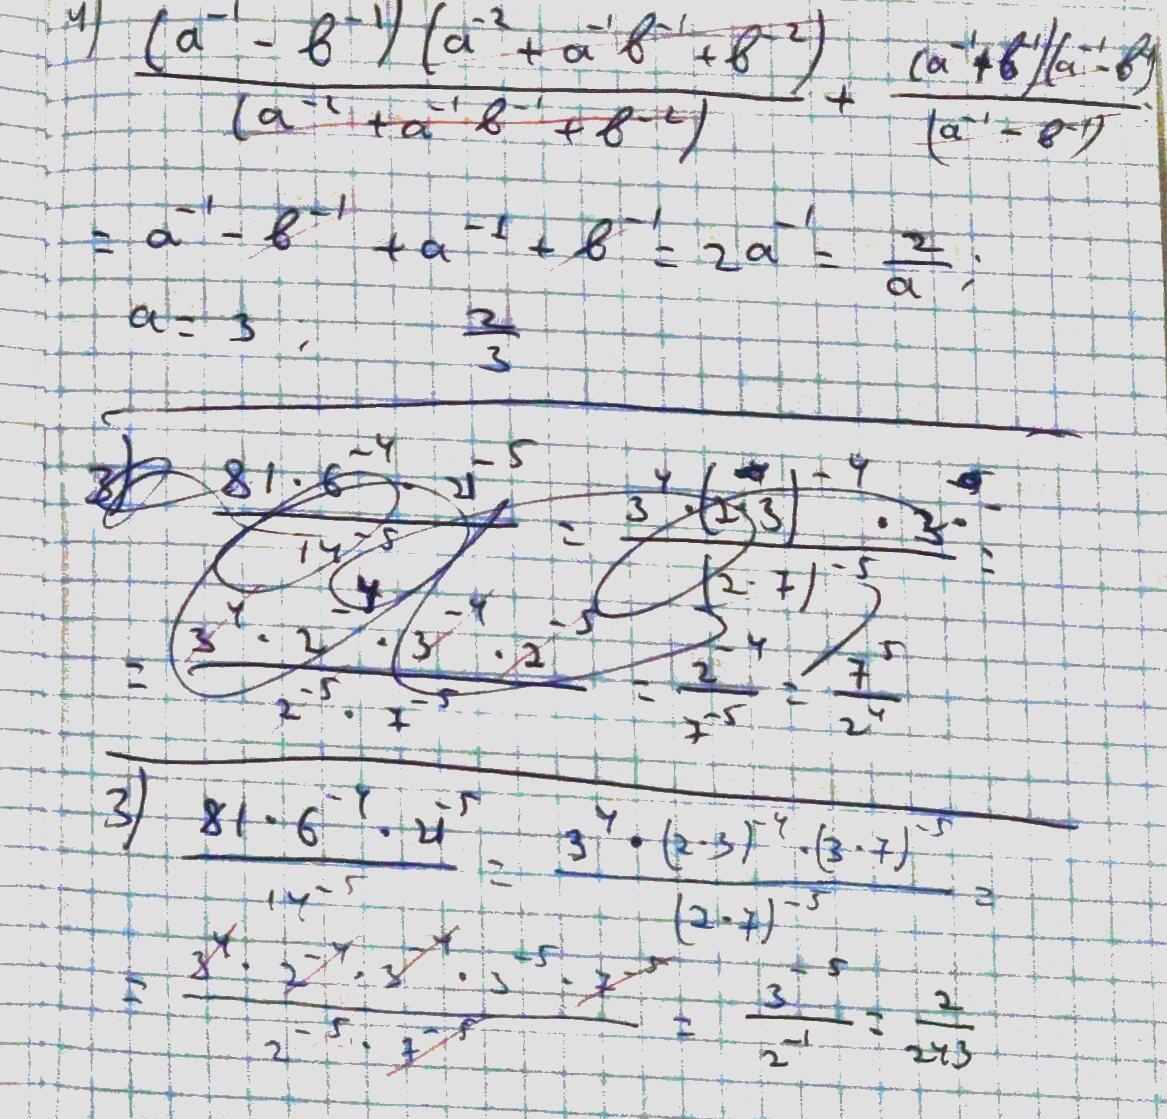 4) ((a⁻¹ - b⁻¹)(a⁻² + a⁻¹b⁻¹ + b⁻²))/(a⁻² + a⁻¹b⁻¹ + b⁻²) + ((a⁻¹ + b⁻¹)(a⁻¹ - b⁻¹))/(a⁻¹ - b⁻¹)
= a⁻¹ - b⁻¹ + a⁻¹ + b⁻¹ = 2a⁻¹ = 2/a;
a = 3, 2/3
3) (81 · 6⁻⁴ · 21⁻⁵)/14⁻⁵ = (3⁴ · (2·3)⁻⁴ · 3·)/(2·7)⁻⁵ =
= (3⁴ · 2⁻⁴ · 3⁻⁴ · 2⁻⁵)/(2⁻⁵ · 7⁻⁵) = 2⁻⁴/7⁻⁵ = 7⁵/2⁴
3) (81 · 6⁻⁴ · 21⁻⁵)/14⁻⁵ = (3⁴ · (2·3)⁻⁴ · (3·7)⁻⁵)/(2·7)⁻⁵ =
= (3⁴ · 2⁻⁴ · 3⁻⁴ · 3⁻⁵ · 7⁻⁵)/(2⁻⁵ · 7⁻⁵) = 3⁻⁵/2⁻¹ = 2/243